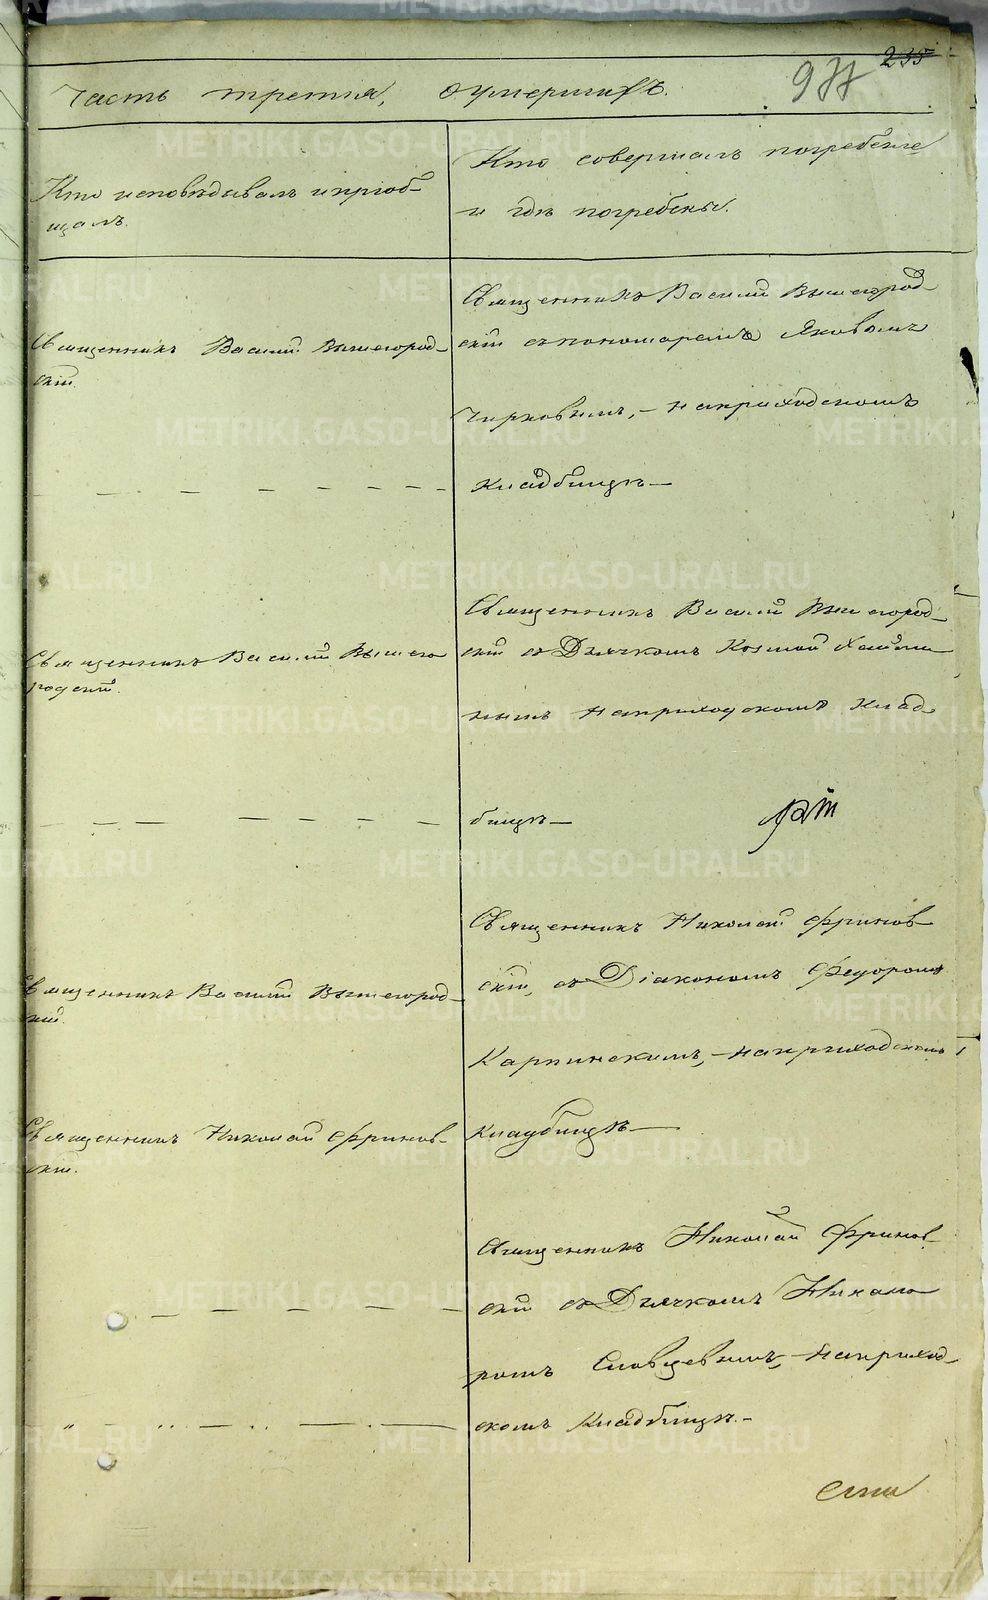 235
977
Часть третія, о умершихъ.
Кто исповѣдывалъ и пріоб-
щалъ.
Кто совершалъ погребеніе
и гдѣ погребены.
Священникъ Василій Вышегород-
скій.
Священникъ Василій Вышегород-
скій съ пономаремъ Яковомъ
Чирковымъ, – на приходскомъ
кладбищѣ –
Священникъ Василій Вышего
родскій.
Священникъ Василій Вышегород-
скій съ Дьячкомъ Козмой
нымъ на приходскомъ клад
бищѣ –
Священникъ Василій Вышегород-
скій.
Священникъ Николай Фринов-
скій.
Священникъ Николай Фринов-
скій, съ Діакономъ Федоромъ
Карпинскимъ, – на приходскомъ
кладбищѣ –
Священникъ Николай Фринов-
скій съ Дьячкомъ Никано
ромъ Словцевымъ, – на приход-
скомъ кладбищѣ. –
METRIKI.GASO-URAL.RU